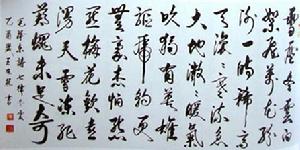 雪壓冬雲白
絮飛萬花紛
謝一時稀高
天滾滾寒流急
大地微微暖氣
吹獨有英雄
驅虎豹更
無豪傑怕熊
羆梅花歡喜
漫天雪凍死
蒼蠅未足奇
毛澤東詩七律冬雲
乙酉 書